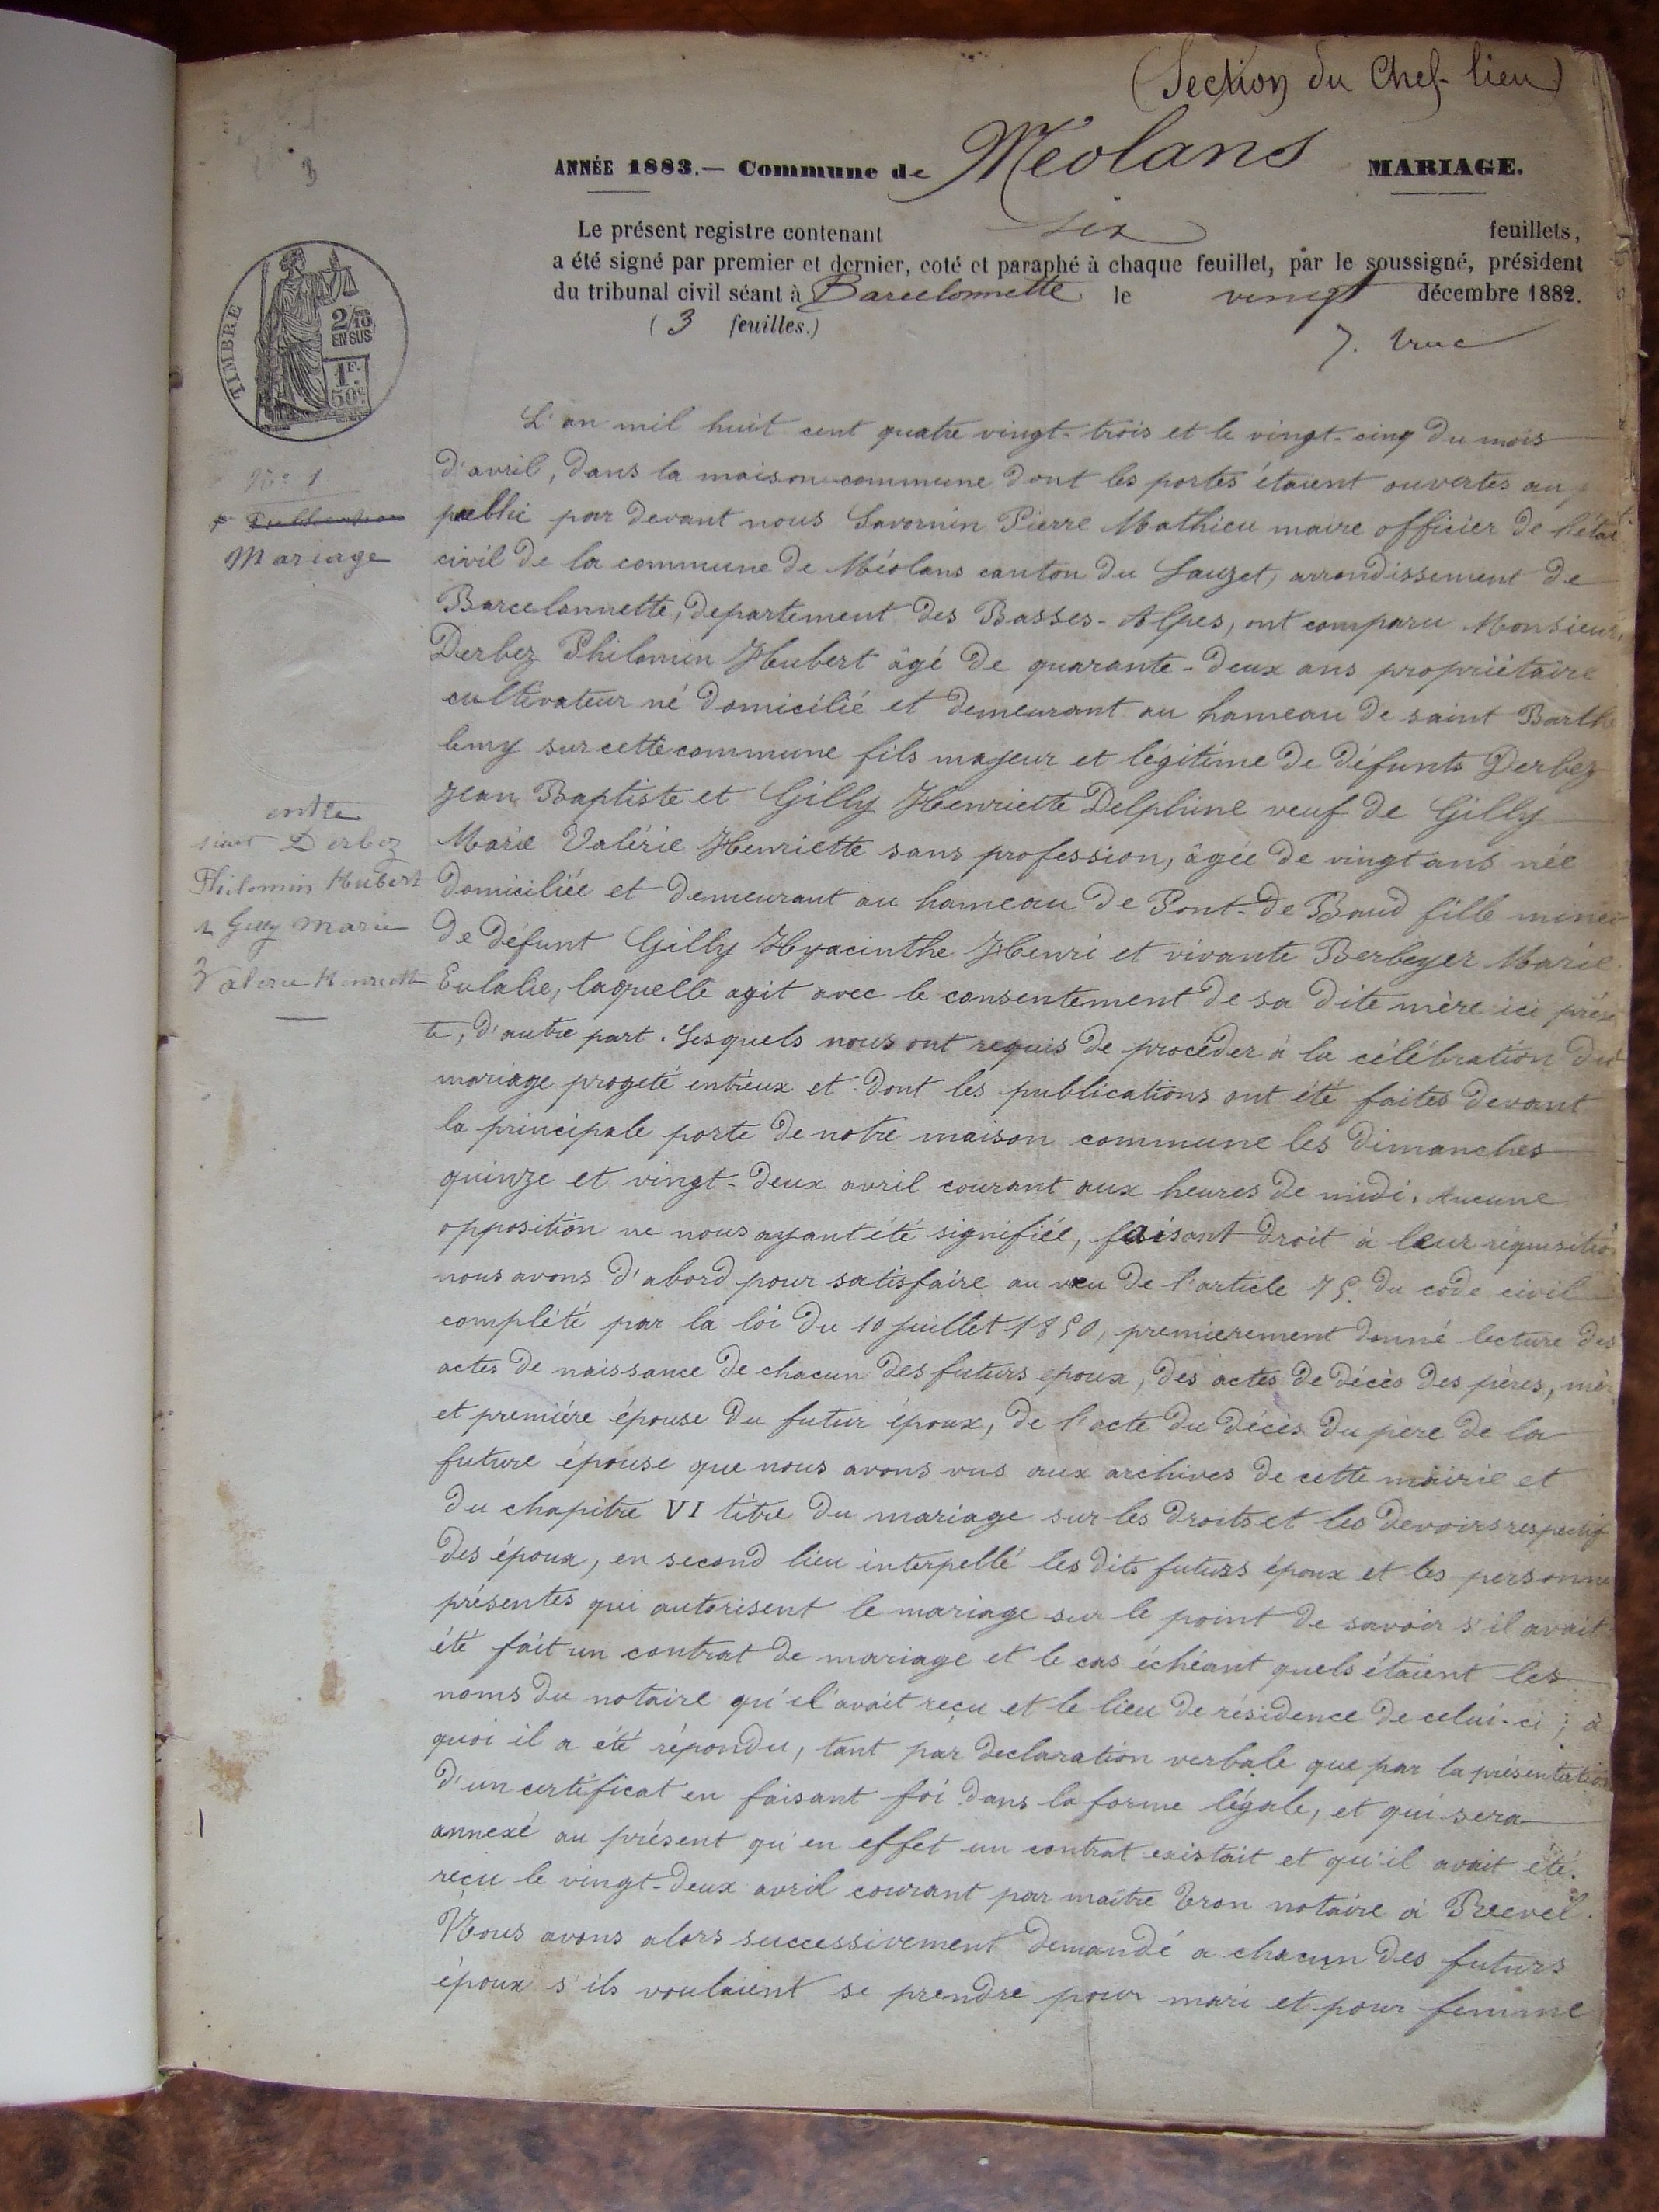 (Section du Chef-lieu)
ANNÉE 1883.— Commune de Méolans MARIAGE.
Le présent registre contenant six feuillets,
a été signé par premier et dernier, coté et paraphé à chaque feuillet, par le soussigné, président
du tribunal civil séant à Barcelonnette le vingt décembre 1882.
(3 feuilles.)
TIMBRE
2/10 EN SUS
1F. 50c
N° 1
Publication
Mariage
entre
sieur Derbez
Philomin Hubert
& Gilly Marie
Valerie Henriette
L'an mil huit cent quatre vingt-trois et le vingt-cinq du mois
d'avril, dans la maison commune dont les portes étaient ouvertes au
public par devant nous Savornin Pierre Mathieu maire officier de l'état
civil de la commune de Méolans canton du Lauzet, arrondissement de
Barcelonnette, departement des Basses-Alpes, ont comparu Monsieur
Derbez Philomin Hubert âgé de quarante-deux ans propriétaire
cultivateur né domicilié et demeurant au hameau de saint Barthé
lemy sur cette commune fils majeur et légitime de défunts Derbez
Jean Baptiste et Gilly Henriette Delphine veuf de Gilly
Marie Valérie Henriette sans profession, âgée de vingt ans née
domiciliée et demeurant au hameau de Pont-de Baud fille mineu
de défunt Gilly Hyacinthe Henri et vivante Berbeyer Marie
Eulalie, laquelle agit avec le consentement de sa dite mère ici présen
te, d'autre part. Lesquels nous ont requis de procéder à la célébration du
mariage progeté entreux et dont les publications ont été faites devant
la principale porte de notre maison commune les dimanches
quinze et vingt-deux avril courant aux heures de midi. Aucune
opposition ne nous ayant été signifiée, faisant droit à leur réquisition
nous avons d'abord pour satisfaire au vœu de l'article 75 du code civil
complété par la loi du 10 juillet 1850, premierement donné lecture des
actes de naissance de chacun des futurs epoux, des actes de décès des pères, mère
et première épouse du futur époux, de l'acte du décès du père de la
future épouse que nous avons vus aux archives de cette mairie et
du chapitre VI titre du mariage sur les droits et les devoirs respectif
des époux, en second lieu interpellé les dits futurs époux et les personne
présentes qui autorisent le mariage sur le point de savoir s'il avait
été fait un contrat de mariage et le cas échéant quels étaient les
noms du notaire qu'il avait reçu et le lieu de résidence de celui-ci ; à
quoi il a été répondu, tant par declaration verbale que par la présentation
d'un certificat en faisant foi dans la forme légale, et qui sera
annexé au présent qu'en effet un contrat existait et qu'il avait été
reçu le vingt-deux avril courant par maître Tron notaire à Revel.
Nous avons alors successivement demandé a chacun des futurs
époux s'ils voulaient se prendre pour mari et pour femme